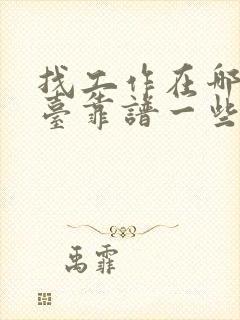 找工作在哪
臺靠譜一些
禹霏